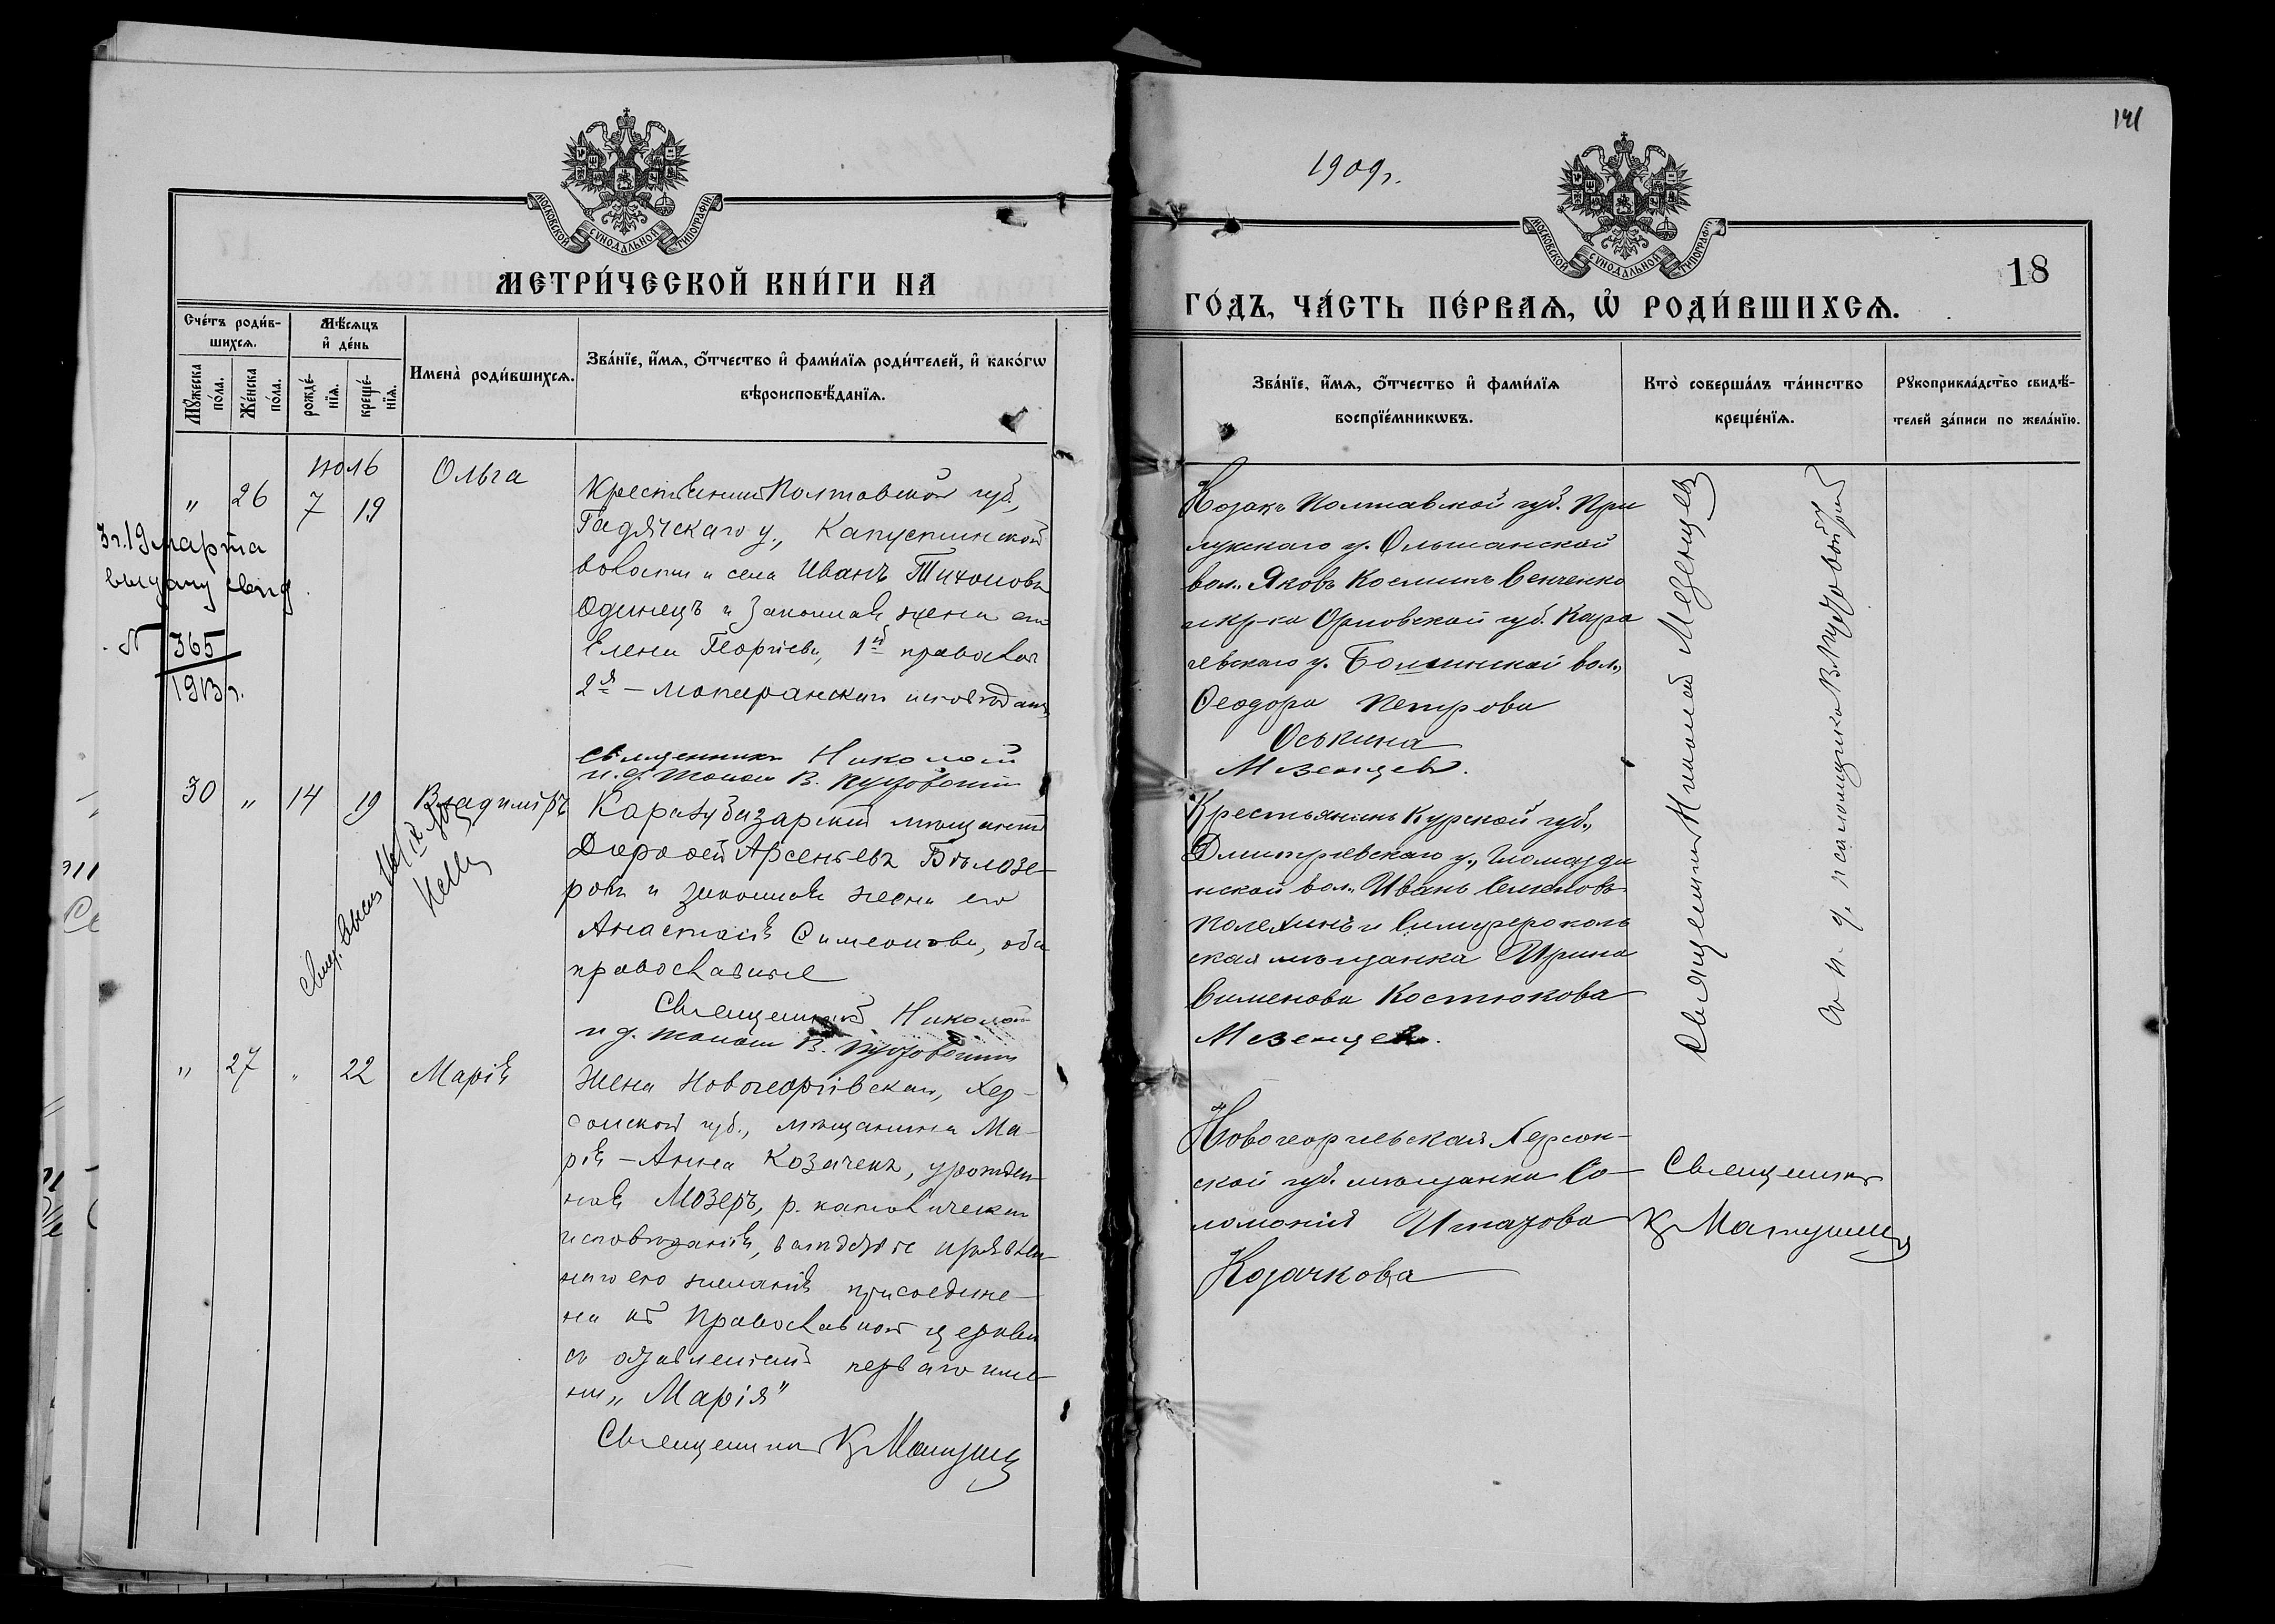 МОСКОВСКОЙ СѴНОДАЛЬНОЙ ТИПОГРАФІИ
МЕТРИ́ЧЕСКОЙ КНИ́ГИ НА
Сче́тъ роди́в-
шихсѧ.
Мѣ́сѧцъ
и҆ де́нь
Мꙋ́жеска
по́ла.
Же́нска
по́ла.
рожде́-
нїѧ.
креще́-
нїѧ.
Имена̀ роди́вшихсѧ.
Зва́нїе, и҆́мѧ, ѻ҆́тчество и҆ фами́лїѧ роди́телей, и҆ како́гѡ
вѣроисповѣ́данїѧ.
Июль
" 26 7 19 Ольга
Крестьянинъ Полтавской губ.,
Гадячскаго у., Капустинской
волости и села Иванъ Тихоновъ
Одинецъ и законная жена его
Елена Георгіева, 1й православ
2я – лютеранскаго исповѣданія
19 марта
выдану свид
№ 365
1913 г.
Священникъ Николай
и. д. псалом В. Пузовой
30 " 14 19 Владиміръ
Карасубазарскій мѣщанинъ
Дорофей Арсеньевъ Бѣлозе-
ровъ и законная жена его
Анастасія Симеонова, оба
православные
Священникъ Николай
и д. псалом В. Пузовой
" 27 " 22 Марія
Жена Новогеоргіевскаго, Хер-
сонской губ., мѣщанина Ма-
рія – Анна Козачекъ, урожден-
ная Мозеръ, р. католическаго
исповѣданія, вслѣдствіе изъявлен-
наго ею желанія присоедине-
на къ Православной церкви
съ оставленіемъ перваго име-
ни „Марія"
Священникъ К Матушев
141
1909 г.
МОСКОВСКОЙ СѴНОДАЛЬНОЙ ТИПОГРАФІИ
18
ГО́ДЪ, ЧА́СТЬ ПЕ́РВАѦ, Ѡ҆ РОДИ́ВШИХСѦ.
Зва́нїе, и҆́мѧ, ѻ҆́тчество и҆ фами́лїѧ
воспрїе́мникѡвъ.
Кто̀ соверша́лъ та́инство
креще́нїѧ.
Рꙋкоприкла́дство свидѣ́-
телей за́писи по жела́нїю.
Козакъ Полтавской губ. При
лукскаго у. Ольшанской
вол. Яковъ Косминъ Сенченко
и кр-ка Орловской губ. Кара
чевскаго у. Бошинской вол.,
Ѳеодора Петрова
Оськина
Мезенцевъ.
Крестьянинъ Курской губ.,
Дмитріевскаго у., Гломазди
нской вол. Иванъ Семеновъ
Полехинъ и Симферополь
ская мѣщанка Ирина
Сименова Костюкова
Мезенцевъ.
Священникъ Николай Мезенцевъ
и. д. псаломщика В. Пузовой
Новогеоргіевская Херсон-
ской губ. мѣщанка Со-
ломонія Игнатова
Козачкова
Священникъ
К Матушев